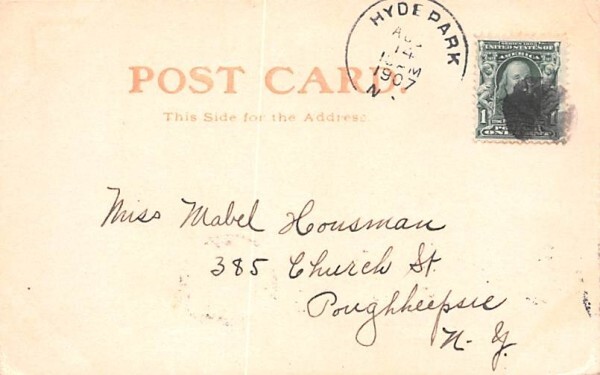 HYDE PARK
AUG
14
1907
N.
UNITED STATES OF
1
1
POST CARD.
This Side for the Address.
Miss Mabel Housman
385 Church St.
Poughkeepsie
N. Y.